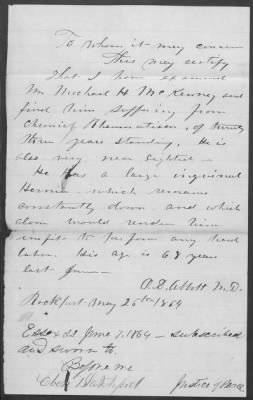 To whom it may concern
This may certify
that I have examined
Mr Michael H McKenney and
find him suffering from
Chronic Rheumatism, of twenty
three years standing. He is
also very near sighted —
He has a large inguinal
Hernia which remains
constantly down and which
alone would render him
unfit to perform any hard
labor. His age is 68 years
last June —
A. E. Abbott M. D.
Rockport May 26th 1864
Essex ss. June 7. 1864 — subscribed
and sworn to.
Before me
Justice of Peace